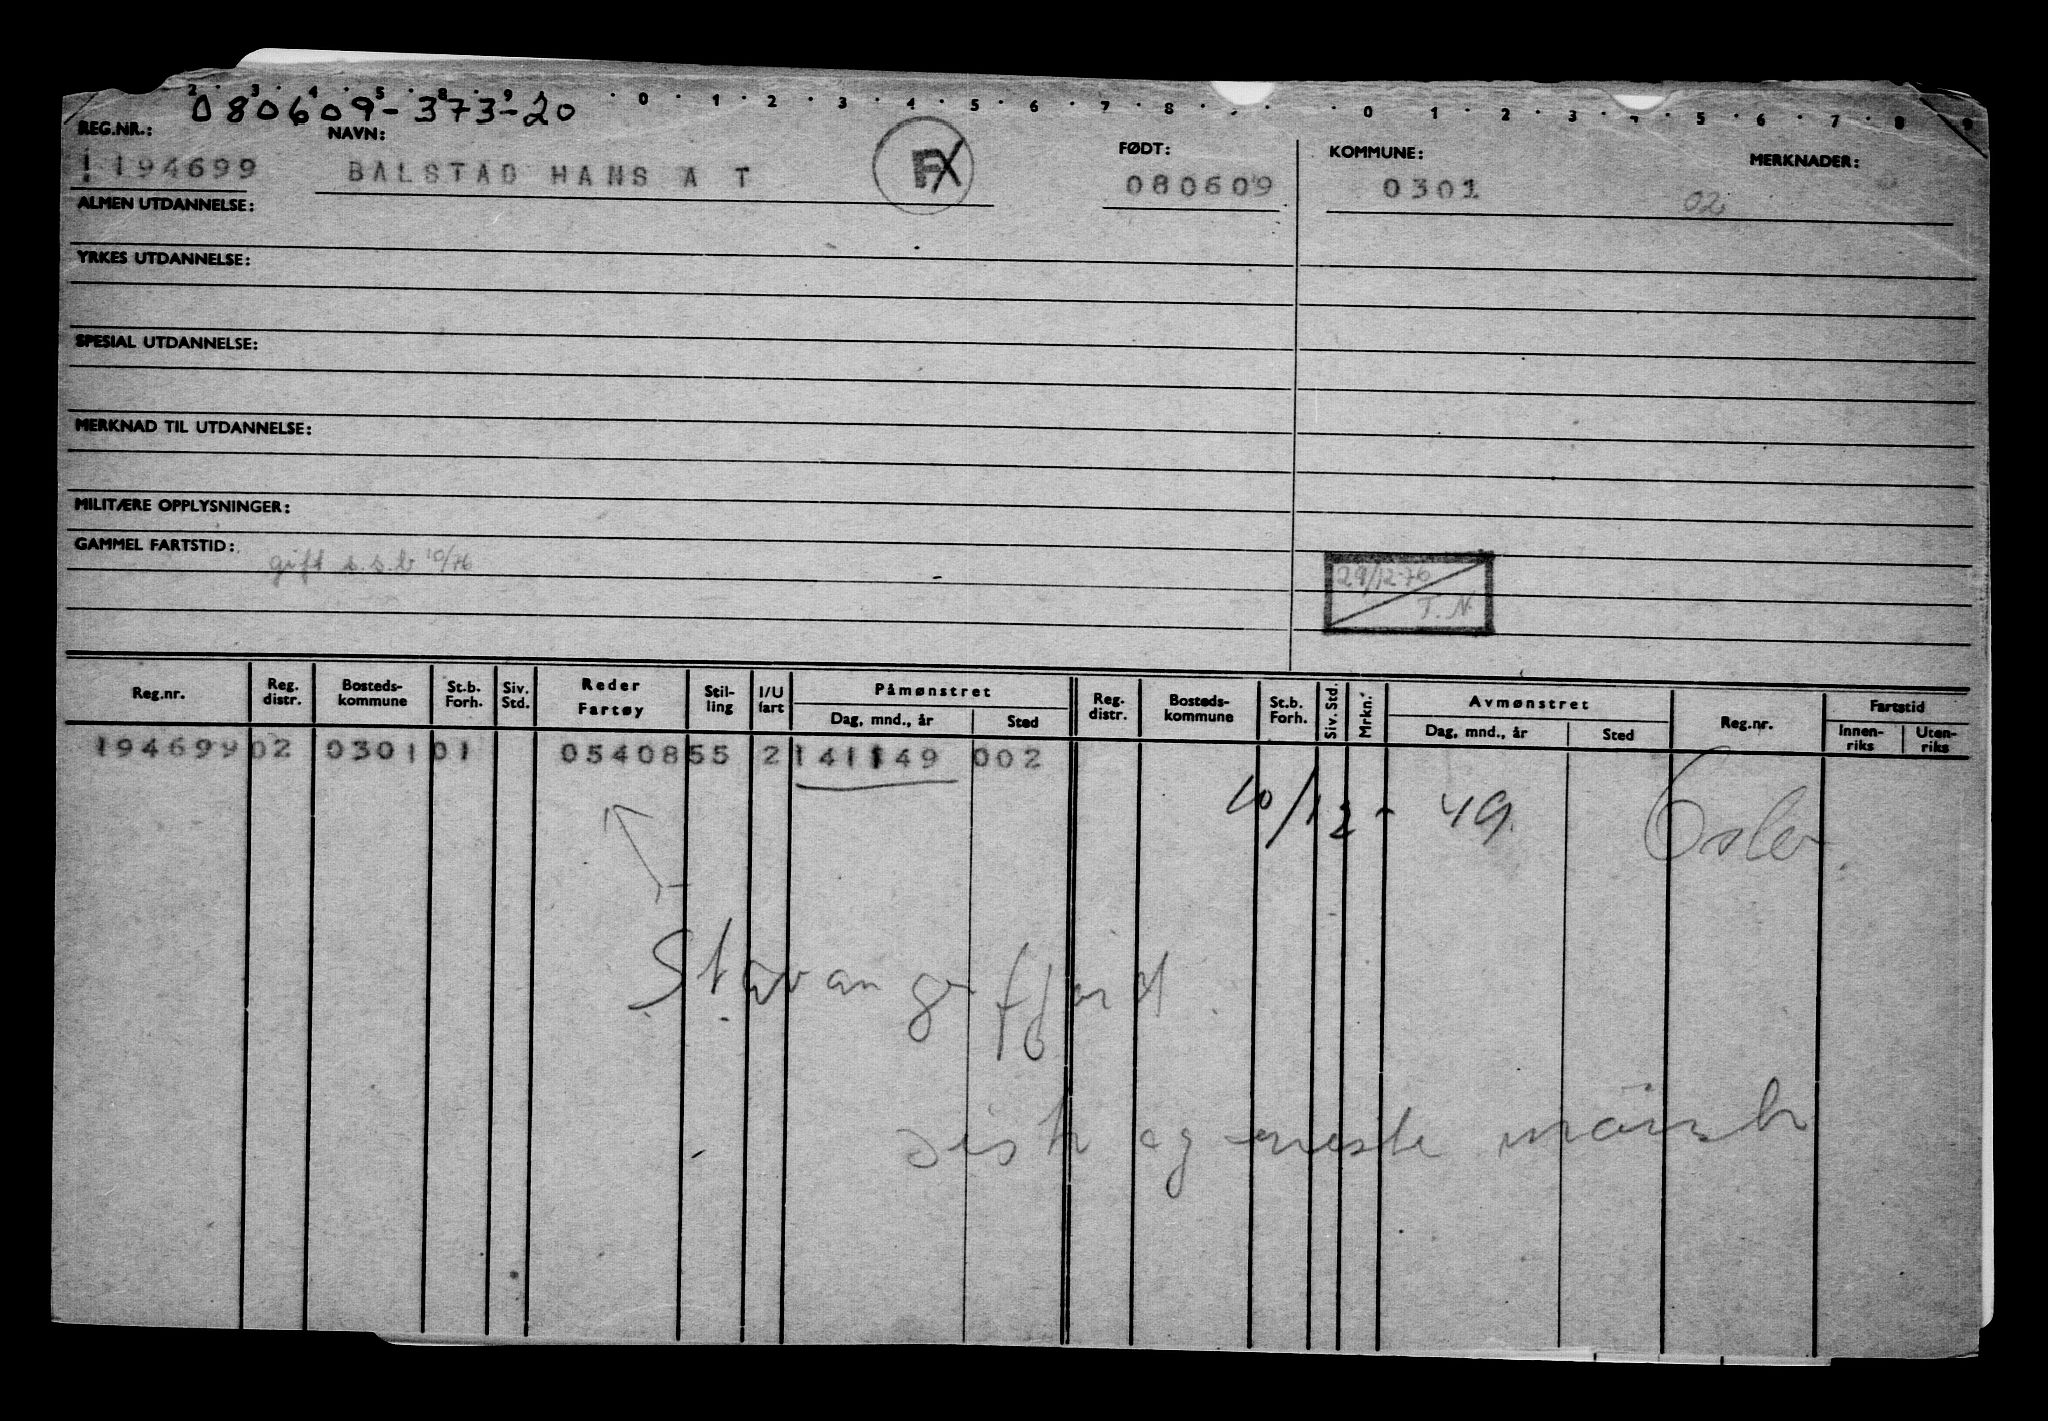 2 3 4 5 8 9 . 0 . 1 . 2 . 3 . 4 . 5 . 6 . 7 . 8 . 0 . 1 . 2 . 3 . 5 . 6 . 7 . 8 . 9
080609-373-20
REG.NR.: NAVN: FØDT: KOMMUNE: MERKNADER:
194699 BALSTAD HANS A T FX 080609 0301 02
ALMEN UTDANNELSE:
YRKES UTDANNELSE:
SPESIAL UTDANNELSE:
MERKNAD TIL UTDANNELSE:
MILITÆRE OPPLYSNINGER:
GAMMEL FARTSTID: gift s.s.b 10/76
29/12-76
T.N
Reg.nr. Reg. distr. Bosteds-kommune St.b. Forh. Siv. Std. Reder Fartøy Stil-ling I/U fart Påmønstret Dag, mnd., år Sted Reg. distr. Bosteds-kommune St.b. Forh. Siv. Std. Mrkn. Avmønstret Dag, mnd., år Sted Reg.nr. Fartstid Innen-riks Uten-riks
194699 02 0301 01 05408 55 2 141149 002
10/12-49. Oslo.
Stavangerfjord.
siste og eneste mønstr